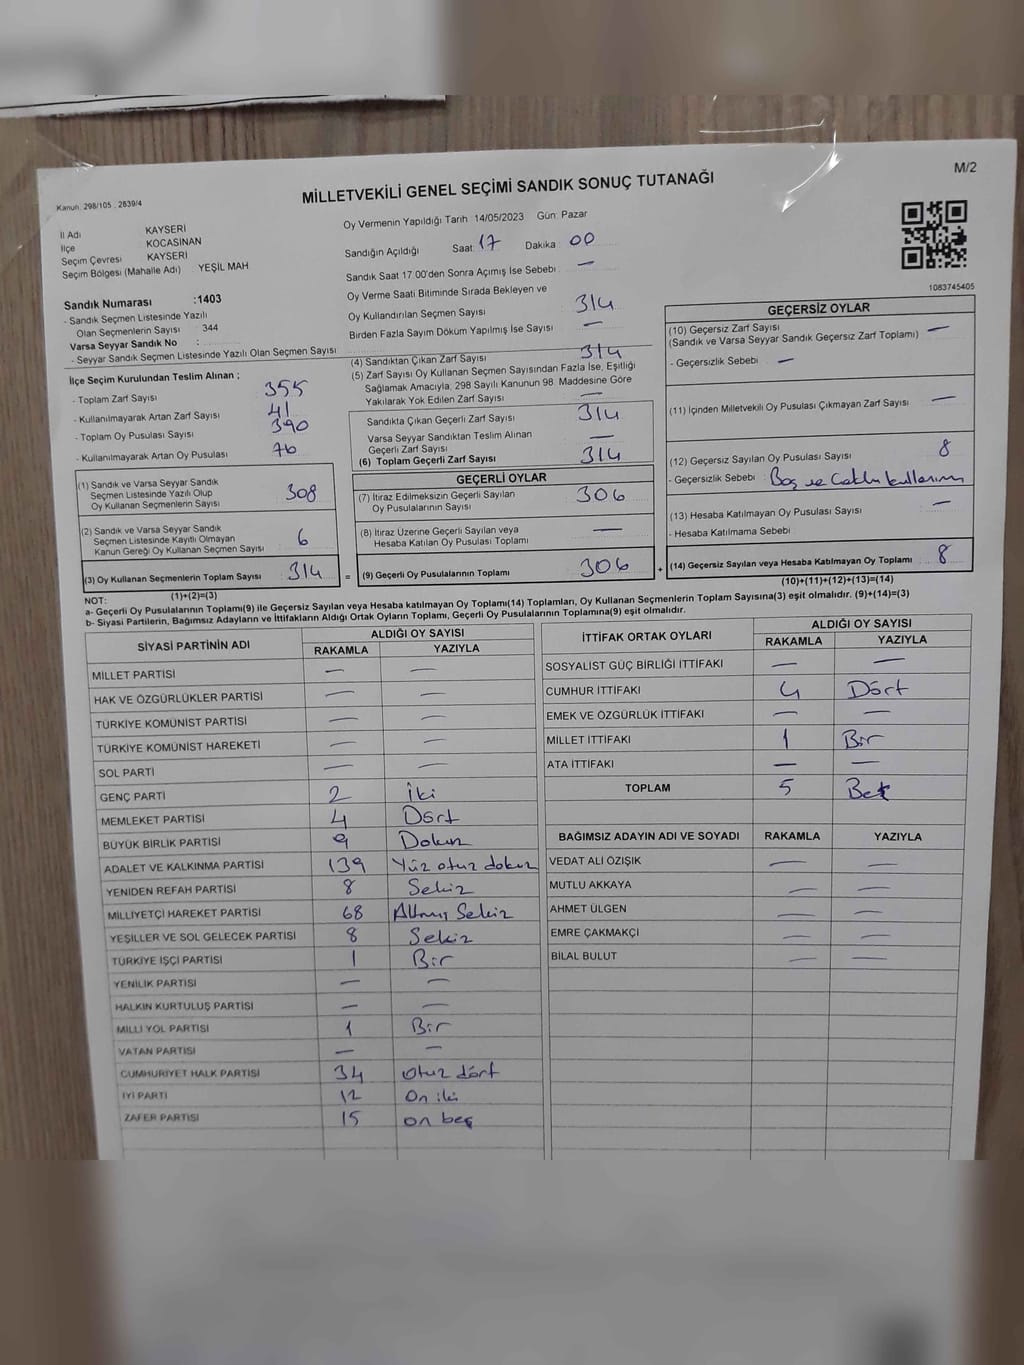 M/2
MİLLETVEKİLİ GENEL SEÇİMİ SANDIK SONUÇ TUTANAĞI
Kanun: 298/105 . 2839/4
İl Adı KAYSERİ
İlçe KOCASİNAN
Seçim Çevresi KAYSERİ
Seçim Bölgesi (Mahalle Adı) YEŞİL MAH
Oy Vermenin Yapıldığı Tarih 14/05/2023 Gün: Pazar
Sandığın Açıldığı Saat: 17 Dakika 00
Sandık Saat 17.00'den Sonra Açımış İse Sebebi —
Oy Verme Saati Bitiminde Sırada Bekleyen ve
Oy Kullandırılan Seçmen Sayısı 314
Birden Fazla Sayım Döküm Yapılmış İse Sayısı —
1083745405
Sandık Numarası :1403
- Sandık Seçmen Listesinde Yazılı
Olan Seçmenlerin Sayısı : 344
Varsa Seyyar Sandık No :
- Seyyar Sandık Seçmen Listesinde Yazılı Olan Seçmen Sayısı
İlçe Seçim Kurulundan Teslim Alınan ;
- Toplam Zarf Sayısı 355
- Kullanılmayarak Artan Zarf Sayısı 41
- Toplam Oy Pusulası Sayısı 390
- Kullanılmayarak Artan Oy Pusulası 76
(1) Sandık ve Varsa Seyyar Sandık
Seçmen Listesinde Yazılı Olup
Oy Kullanan Seçmenlerin Sayısı 308
(2) Sandık ve Varsa Seyyar Sandık
Seçmen Listesinde Kayıtlı Olmayan
Kanun Gereği Oy Kullanan Seçmen Sayısı 6
(3) Oy Kullanan Seçmenlerin Toplam Sayısı 314 =
(1)+(2)=(3)
(4) Sandıktan Çıkan Zarf Sayısı 314
(5) Zarf Sayısı Oy Kullanan Seçmen Sayısından Fazla İse, Eşitliği
Sağlamak Amacıyla, 298 Sayılı Kanunun 98. Maddesine Göre
Yakılarak Yok Edilen Zarf Sayısı —
Sandıkta Çıkan Geçerli Zarf Sayısı 314
Varsa Seyyar Sandıktan Teslim Alınan
Geçerli Zarf Sayısı —
(6) Toplam Geçerli Zarf Sayısı 314
GEÇERLİ OYLAR
(7) İtiraz Edilmeksizin Geçerli Sayılan
Oy Pusulalarının Sayısı 306
(8) İtiraz Üzerine Geçerli Sayılan veya
Hesaba Katılan Oy Pusulası Toplamı —
(9) Geçerli Oy Pusulalarının Toplamı 306 +
GEÇERSİZ OYLAR
(10) Geçersiz Zarf Sayısı
(Sandık ve Varsa Seyyar Sandık Geçersiz Zarf Toplamı) —
- Geçersizlik Sebebi —
(11) İçinden Milletvekili Oy Pusulası Çıkmayan Zarf Sayısı —
(12) Geçersiz Sayılan Oy Pusulası Sayısı 8
- Geçersizlik Sebebi : Boş ve
(13) Hesaba Katılmayan Oy Pusulası Sayısı —
- Hesaba Katılmama Sebebi
(14) Geçersiz Sayılan veya Hesaba Katılmayan Oy Toplamı 8
(10)+(11)+(12)+(13)=(14)
NOT:
a- Geçerli Oy Pusulalarının Toplamı(9) ile Geçersiz Sayılan veya Hesaba katılmayan Oy Toplamı(14) Toplamları, Oy Kullanan Seçmenlerin Toplam Sayısına(3) eşit olmalıdır. (9)+(14)=(3)
b- Siyasi Partilerin, Bağımsız Adayların ve İttifakların Aldığı Ortak Oyların Toplamı, Geçerli Oy Pusulalarının Toplamına(9) eşit olmalıdır.
SİYASİ PARTİNİN ADI ALDIĞI OY SAYISI
RAKAMLA YAZIYLA
MİLLET PARTİSİ — —
HAK VE ÖZGÜRLÜKLER PARTİSİ — —
TÜRKİYE KOMÜNİST PARTİSİ — —
TÜRKİYE KOMÜNİST HAREKETİ — —
SOL PARTİ — —
GENÇ PARTİ 2 İki
MEMLEKET PARTİSİ 4 Dört
BÜYÜK BİRLİK PARTİSİ 9 Dokuz
ADALET VE KALKINMA PARTİSİ 139 Yüz otuz dokuz
YENİDEN REFAH PARTİSİ 8 Sekiz
MİLLİYETÇİ HAREKET PARTİSİ 68 Altmış Sekiz
YEŞİLLER VE SOL GELECEK PARTİSİ 8 Sekiz
TÜRKİYE İŞÇİ PARTİSİ 1 Bir
YENİLİK PARTİSİ — —
HALKIN KURTULUŞ PARTİSİ — —
MİLLİ YOL PARTİSİ 1 Bir
VATAN PARTİSİ — —
CUMHURİYET HALK PARTİSİ 34 otuz dört
İYİ PARTİ 12 On iki
ZAFER PARTİSİ 15 on beş
İTTİFAK ORTAK OYLARI ALDIĞI OY SAYISI
RAKAMLA YAZIYLA
SOSYALİST GÜÇ BİRLİĞİ İTTİFAKI — —
CUMHUR İTTİFAKI 4 Dört
EMEK VE ÖZGÜRLÜK İTTİFAKI — —
MİLLET İTTİFAKI 1 Bir
ATA İTTİFAKI — —
TOPLAM 5 Beş
BAĞIMSIZ ADAYIN ADI VE SOYADI RAKAMLA YAZIYLA
VEDAT ALİ ÖZIŞIK — —
MUTLU AKKAYA — —
AHMET ÜLGEN — —
EMRE ÇAKMAKÇİ — —
BİLAL BULUT — —